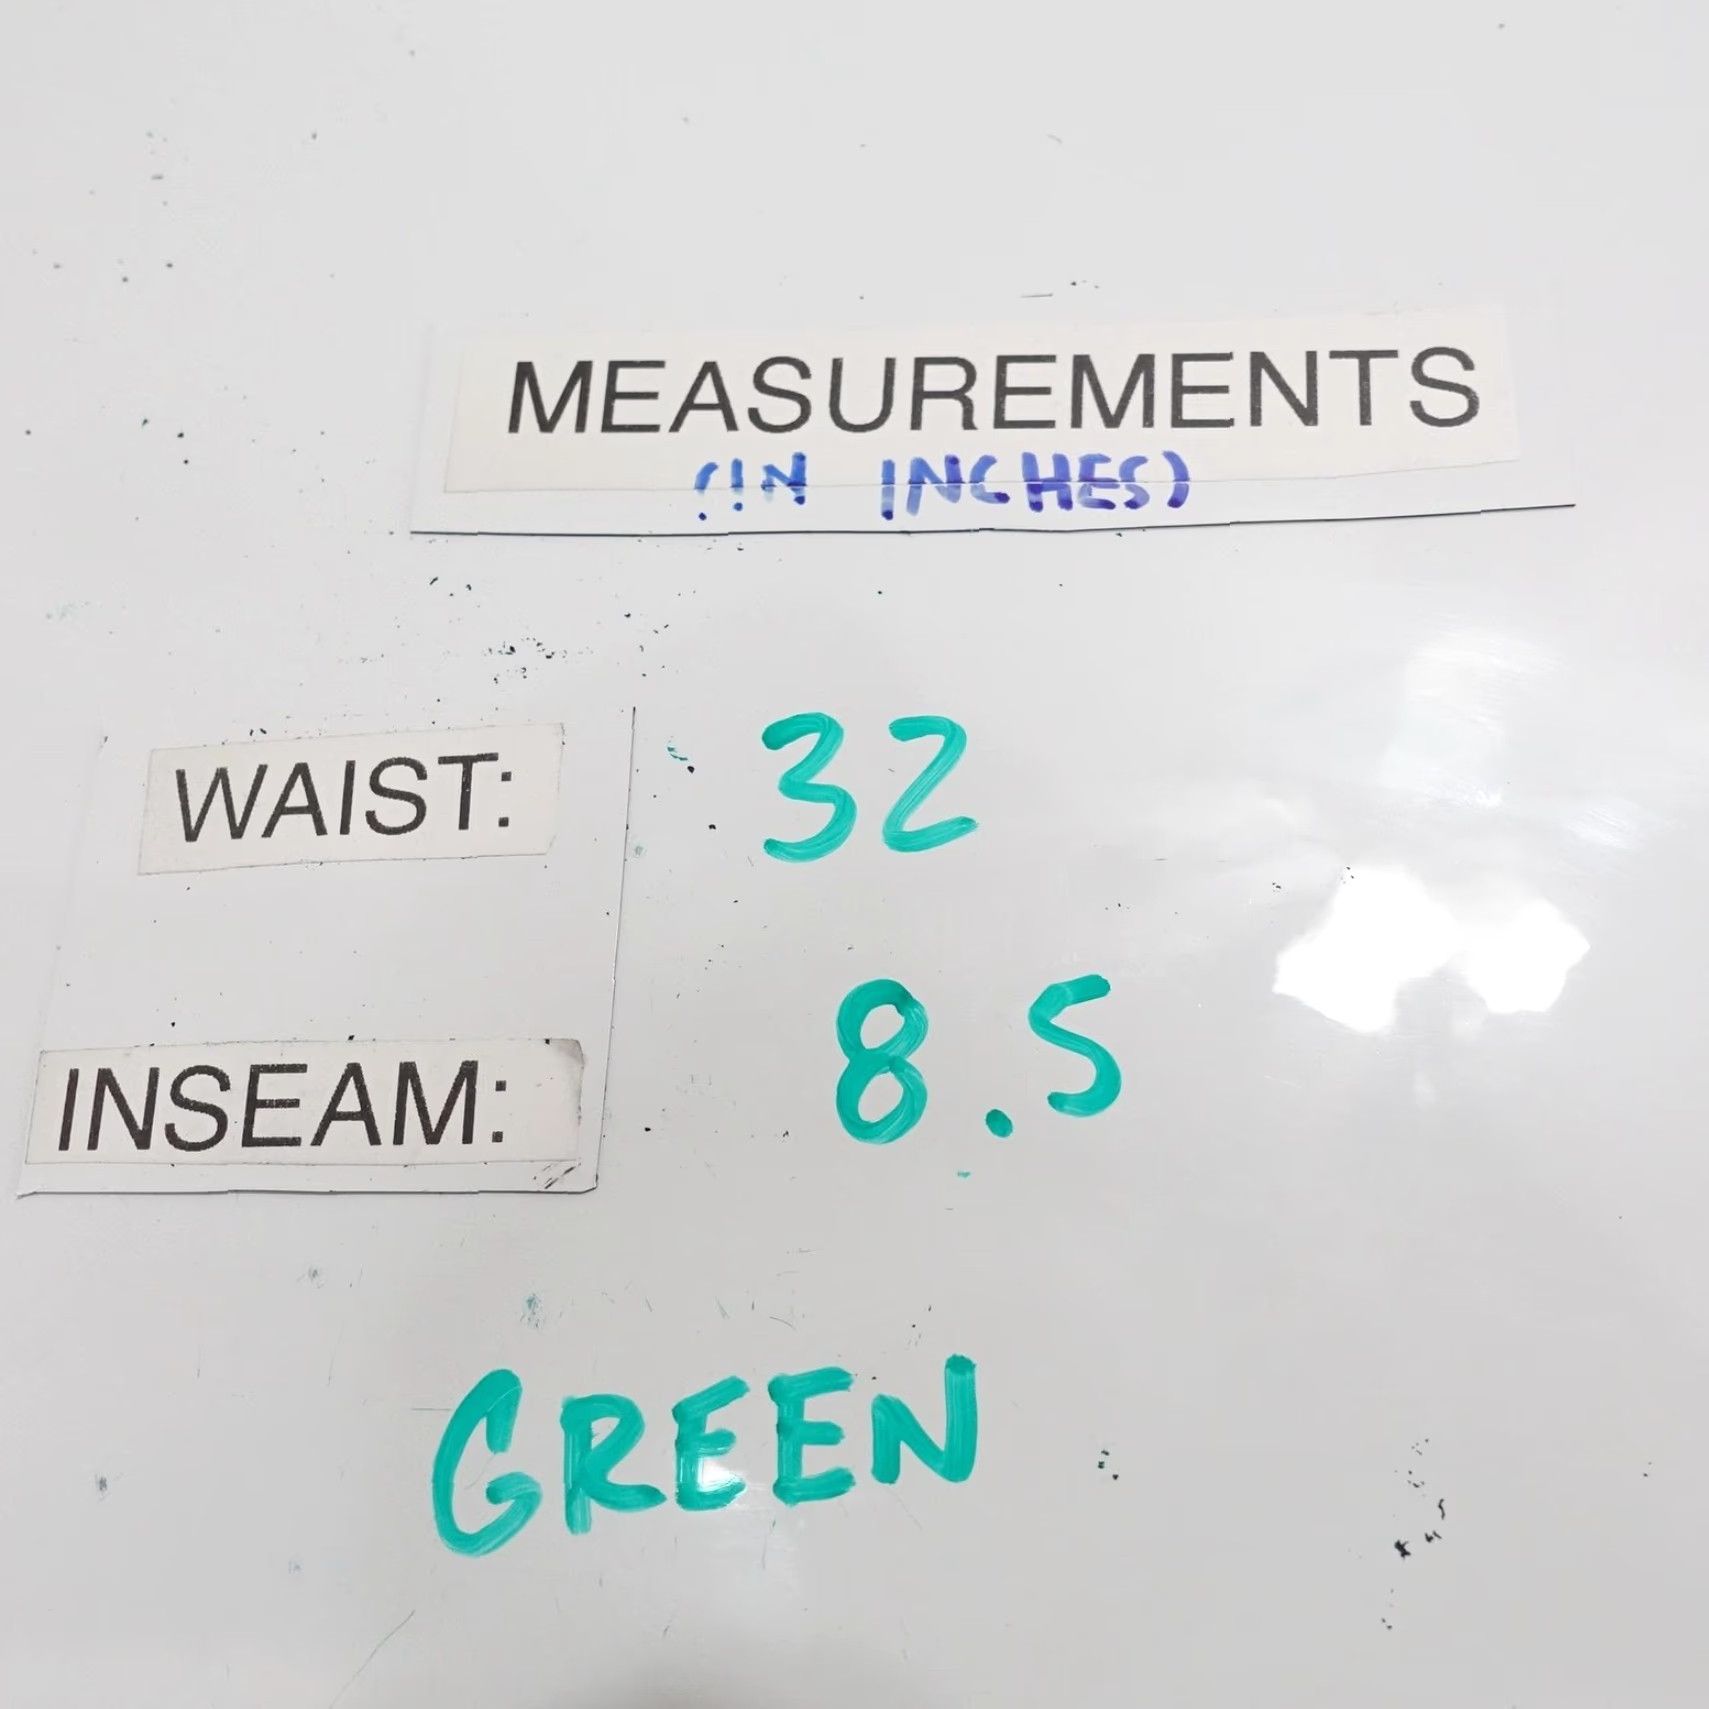 MEASUREMENTS
(IN INCHES)
WAIST: 32
INSEAM: 8.5
GREEN